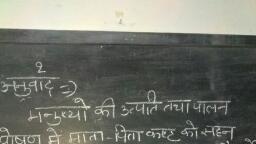 2
अनुवाद =>
मनुष्यो की उत्पति तथा पालन
पोषण मे माता-पिता कष्ट को सहन